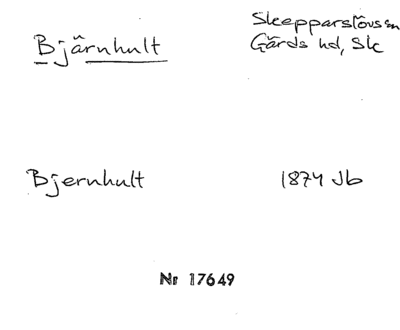 Bjärnhult
Skepparslövs sn
Gärds hd, Sk
Bjernhult
1874 Jb
Nr 17649